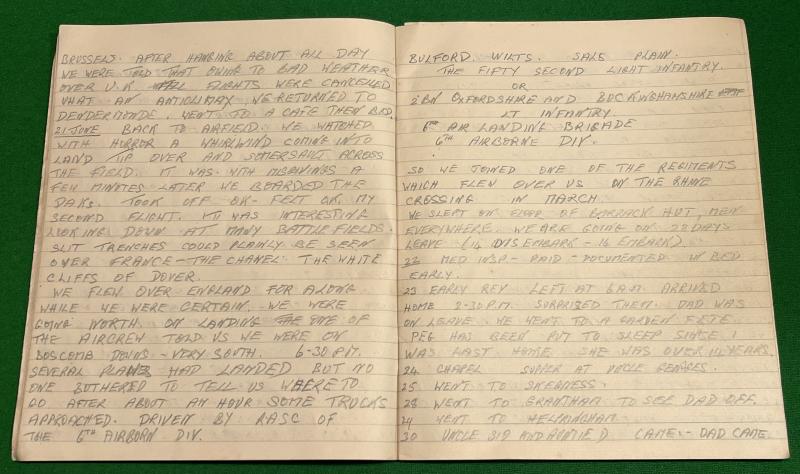 BRUSSELS. AFTER HANGING ABOUT ALL DAY
WE WERE TOLD THAT OWING TO BAD WEATHER
OVER U.K ALL FLIGHTS WERE CANCELLED
WHAT AN ANTICLIMAX. WE RETURNED TO
DENDERMONDE. WENT TO A CAFE THEN BED.
21 JUNE BACK TO AIRFIELD. WE WATCHED
WITH HORROR A WHIRLWIND COMING INTO
LAND TIP OVER AND SOMERSAULT ACROSS
THE FIELD. IT WAS WITH MISGIVINGS A
FEW MINUTES LATER WE BOARDED THE
DAKS. TOOK OFF OK- FELT OK. MY
SECOND FLIGHT. IT WAS INTERESTING
LOOKING DOWN AT MANY BATTLEFIELDS.
SLIT TRENCHES COULD PLAINLY BE SEEN
OVER FRANCE - THE CHANEL. THE WHITE
CLIFFS OF DOVER.
WE FLEW OVER ENGLAND FOR A LONG
WHILE WE WERE CERTAIN WE WERE
GOING NORTH. ON LANDING ONE OF
THE AIRCREW TOLD US WE WERE ON
BOSCOMB DOWNS - VERY SOUTH. 6-30 P.M.
SEVERAL PLANES HAD LANDED BUT NO
ONE BOTHERED TO TELL US WHERE TO
GO AFTER ABOUT AN HOUR SOME TRUCKS
APPROACHED. DRIVEN BY RASC OF
THE 6TH AIRBORN DIV.
BULFORD. WILTS. SALS PLAIN.
THE FIFTY SECOND LIGHT INFANTRY.
OR
2 BN OXFORDSHIRE AND BUCKINGHAMSHIRE
LT INFANTRY.
6TH AIR LANDING BRIGADE
6TH AIRBORNE DIV.
SO WE JOINED ONE OF THE REGIMENTS
WHICH FLEW OVER US ON THE RHINE
CROSSING IN MARCH
WE SLEPT ON FLOOR OF BARRACK HUT, MEN
EVERYWHERE. WE ARE GOING ON 28 DAYS
LEAVE (14 DIS EMBARK - 14 EMBARK).
22 MED INSP - PAID - DOCUMENTED IN BED
EARLY.
23 EARLY REV LEFT AT 6 AM ARRIVED
HOME 2-30 P.M. SURPRIZED THEM. DAD WAS
ON LEAVE. WE WENT TO A GARDEN FETE.
PEG HAS BEEN PUT TO SLEEP SINCE I
WAS LAST HOME. SHE WAS OVER 14 YEARS.
24 CHAPEL SUPPER AT UNCLE GEORGES.
25 WENT TO SKEGNESS.
28 WENT TO GRANTHAM TO SEE DAD OFF.
29 WENT TO HELMINGHAM.
30 UNCLE SID AND AUNTIE D CAME. - DAD CAME